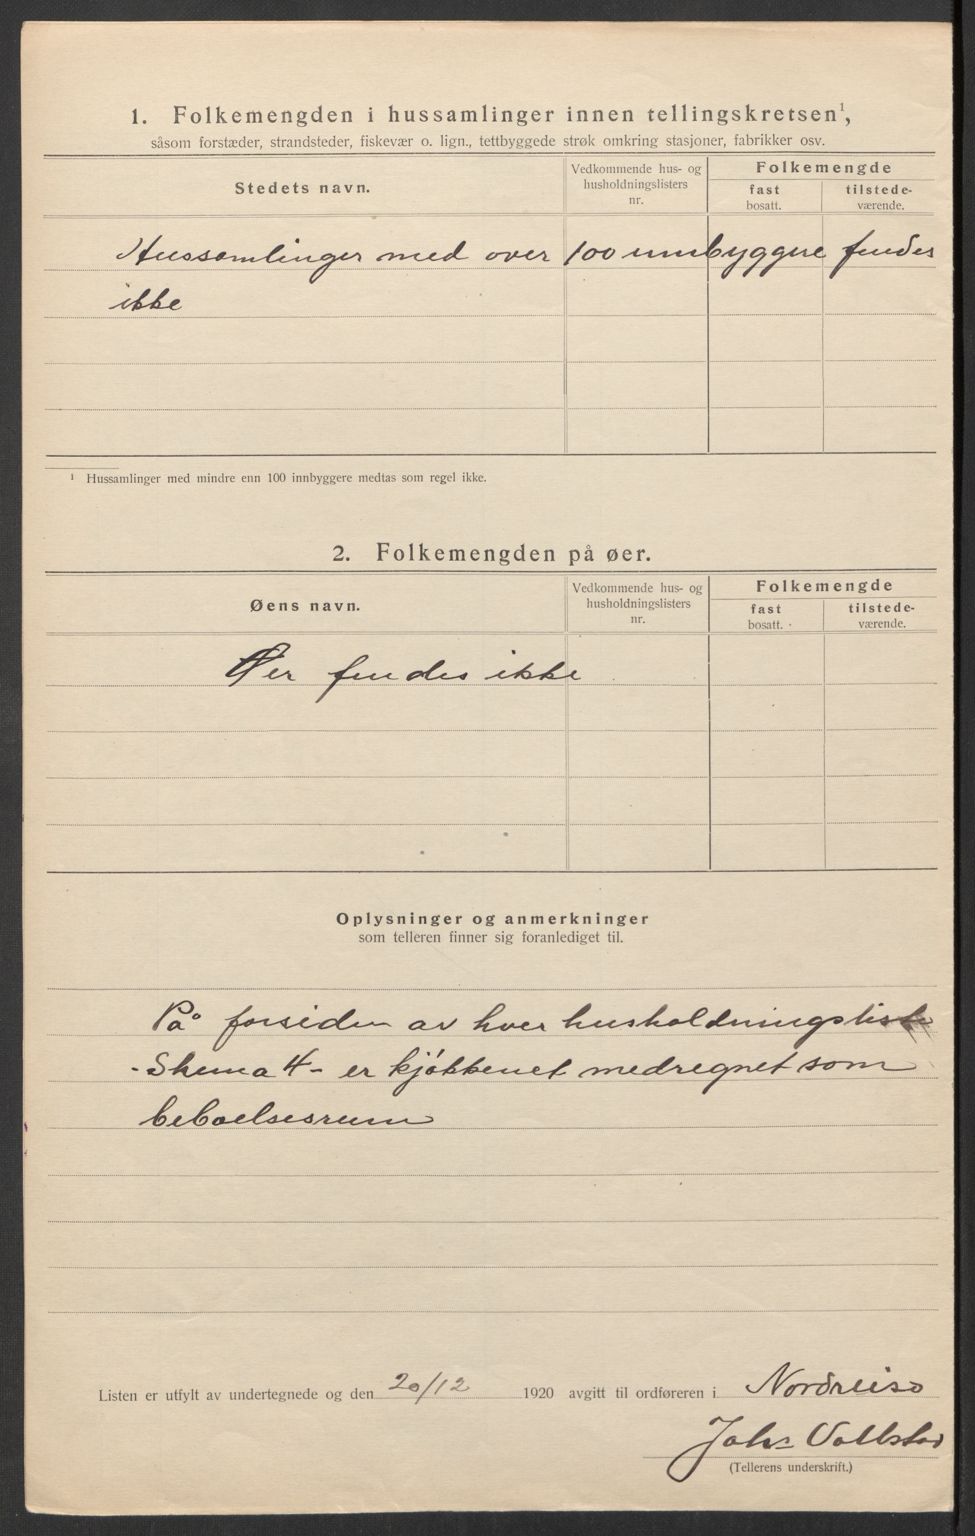 1. Folkemengden i hussamlinger innen tellingskretsen¹,
såsom forstæder, strandsteder, fiskevær o. lign., tettbyggede strøk omkring stasjoner, fabrikker osv.
Stedets navn.
Vedkommende hus- og
husholdningslisters
nr.
Folkemengde
fast
bosatt.
tilstede-
værende.
Hussamlinger med over 100 innbyggere findes
ikke
¹ Hussamlinger med mindre enn 100 innbyggere medtas som regel ikke.
2. Folkemengden på øer.
Øens navn.
Vedkommende hus- og
husholdningslisters
nr.
Folkemengde
fast
bosatt.
tilstede-
værende.
Øer findes ikke
Oplysninger og anmerkninger
som telleren finner sig foranlediget til.
På forsiden av hver husholdningsliste
- Skema 4 - er kjøkkenet medregnet som
beboelsesrum
Listen er utfylt av undertegnede og den 20/12 1920 avgitt til ordføreren i Nordreisa
Johs Vallstad
(Tellerens underskrift.)